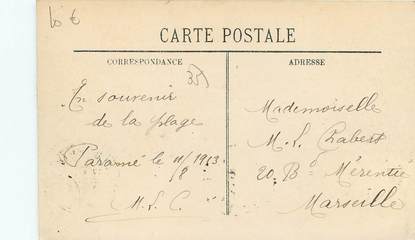 10 €
CARTE POSTALE
CORRESPONDANCE
35
En souvenir
de la plage
Paramé le 11/1913
8
M. L. C.
ADRESSE
Mademoiselle
M. L. Chabert
20, Bd Mérentié
Marseille